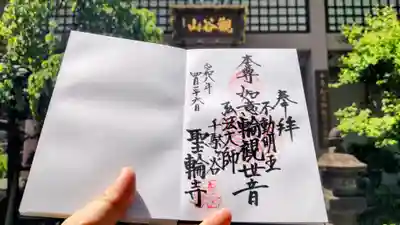 觀谷山
奉拝
不動明王
本尊如意輪觀世音
弘法大師
千駄ヶ谷
聖輪寺
令和八年
四月二十六日